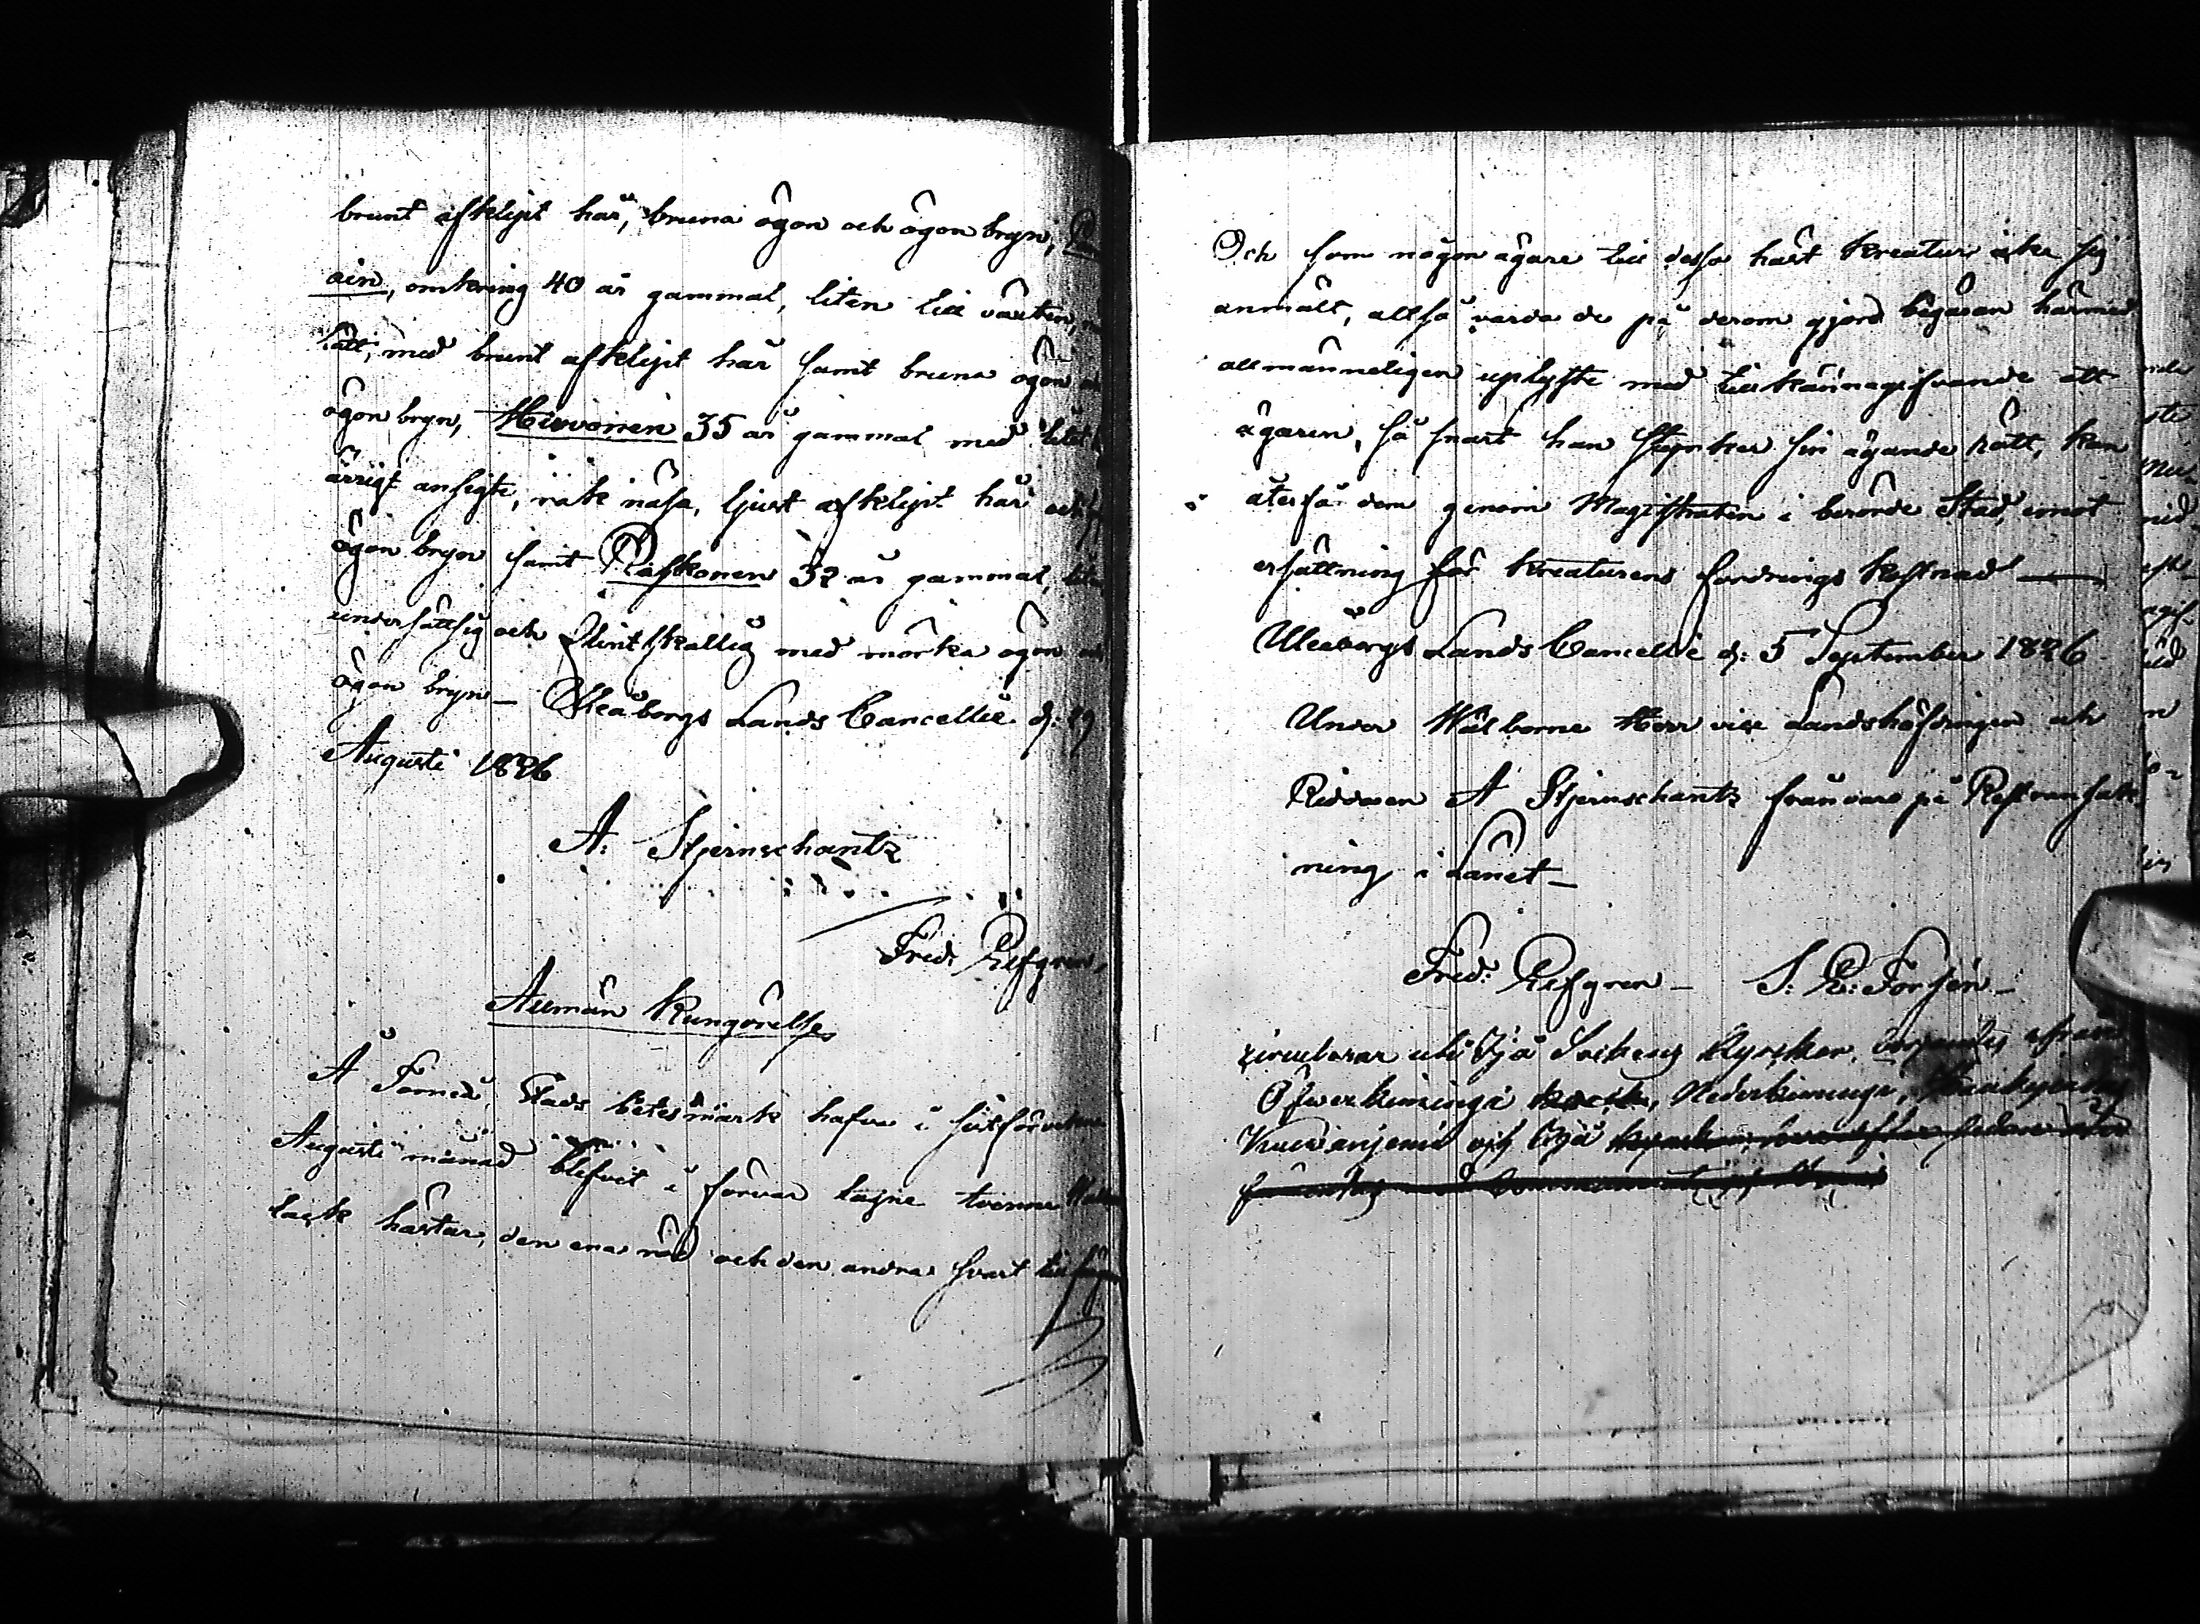 brunt afklipt hår, bruna ögon och ögon bryn,
ain, omkring 40 år gammal, liten till växten,
lätt, med brunt afklipt hår samt bruna ögon
ögon bryn, Hirvonen 35 år gammal med
ärrigt ansigte, rak näsa, ljust afklipt hår och
ögon bryn samt Räsikonen 32 år gammal,
undersättsig och flintskallig med mörka ögon
ögon bryn – Uleåborgs Lands Cancellie d: 29
Augusti 1826
A: Stjernschantz
Fred: Refgren,
Allmän Kungörelse
Å Torneå Stads betesmark hafva i sistförvekne
Augusti månad blefvit i förvar tagne tvenne
lack hästar, den ena röd och den andra svart till färgen
Och som någon ägare till dessa häst kreatur icke sig
anmält, altså varda de på derom gjord begäran härmed
allmänneligen uplyste med tillkännagifvande att
ägaren, så snart han styrker sin ägande rätt, kan
återfå dem genom Magistraten i berörde Stad, emot
ersättning för kreaturens fordrings kostnad —
Uleåborgs Lands Cancellie d: 5 September 1826
Under Wälborne Herr vice Landshöfdingen och
Riddaren A Stjernschantz frånvaro på Rest ransak
ning i Länet –
Fred: Refgren – J: E: Forssén –
circulerar uti Ijå Sockens Kyrckor,
Öfverkiminge, Nederkiminge,
Kuivaniemi och Ijå